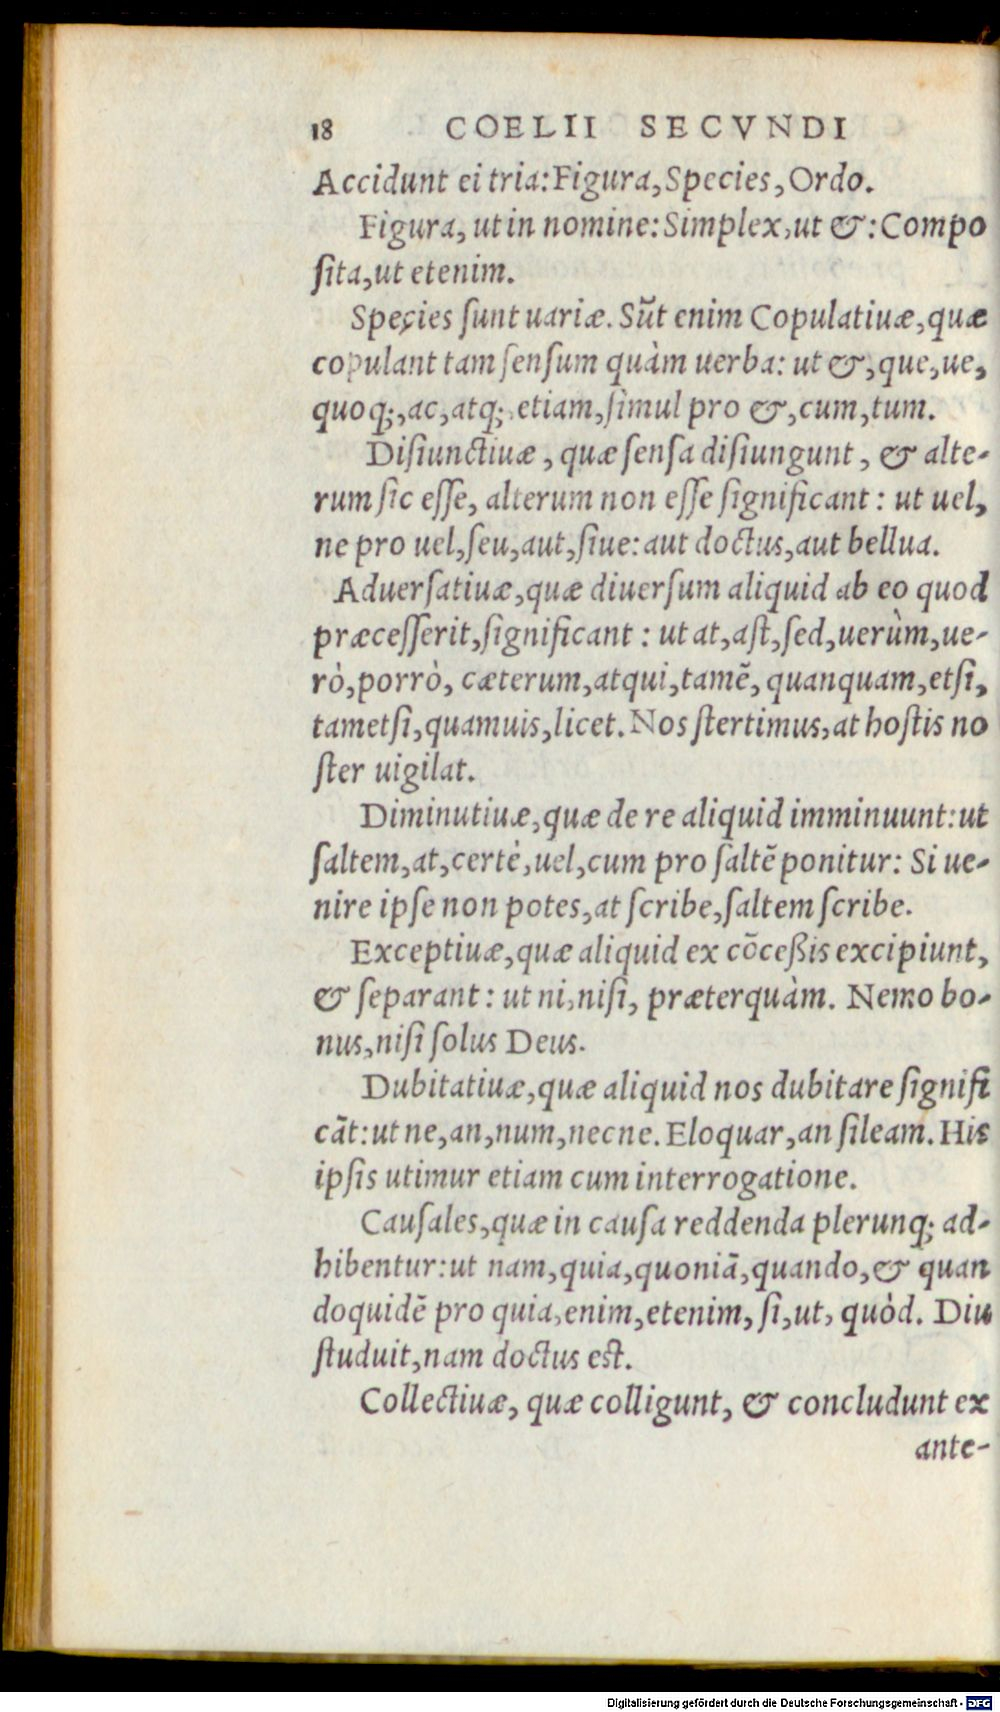 18 COELII SECVNDI
Accidunt ei tria: Figura, Species, Ordo.
Figura, ut in nomine: Simplex, ut &: Compo
ſita, ut etenim.
Species ſunt uariæ. Sũt enim Copulatiuæ, quæ
copulant tam ſenſum quàm uerba: ut &, que, ue,
quoq;, ac, atq;, etiam, ſimul pro &, cum, tum.
Diſiunctiuæ, quæ ſenſa diſiungunt, & alte-
rum ſic eſſe, alterum non eſſe ſignificant: ut uel,
ne pro uel, ſeu, aut, ſiue: aut doctus, aut bellua.
Aduerſatiuæ, quæ diuerſum aliquid ab eo quod
præceſſerit, ſignificant: ut at, aſt, ſed, uerùm, ue-
rò, porrò, cæterum, atqui, tamẽ, quanquam, etſi,
tametſi, quamuis, licet. Nos ſtertimus, at hoſtis no
ſter uigilat.
Diminutiuæ, quæ de re aliquid imminuunt: ut
ſaltem, at, certè, uel, cum pro ſaltẽ ponitur: Si ue-
nire ipſe non potes, at ſcribe, ſaltem ſcribe.
Exceptiuæ, quæ aliquid ex cõceßis excipiunt,
& ſeparant: ut ni, niſi, præterquàm. Nemo bo-
nus, niſi ſolus Deus.
Dubitatiuæ, quæ aliquid nos dubitare ſignifi
cãt: ut ne, an, num, necne. Eloquar, an ſileam. His
ipſis utimur etiam cum interrogatione.
Cauſales, quæ in cauſa reddenda plerunq; ad-
hibentur: ut nam, quia, quoniã, quando, & quan
doquidẽ pro quia, enim, etenim, ſi, ut, quòd. Diu
ſtuduit, nam doctus eſt.
Collectiuæ, quæ colligunt, & concludunt ex
ante-
Digitalisierung gefördert durch die Deutsche Forschungsgemeinschaft - DFG